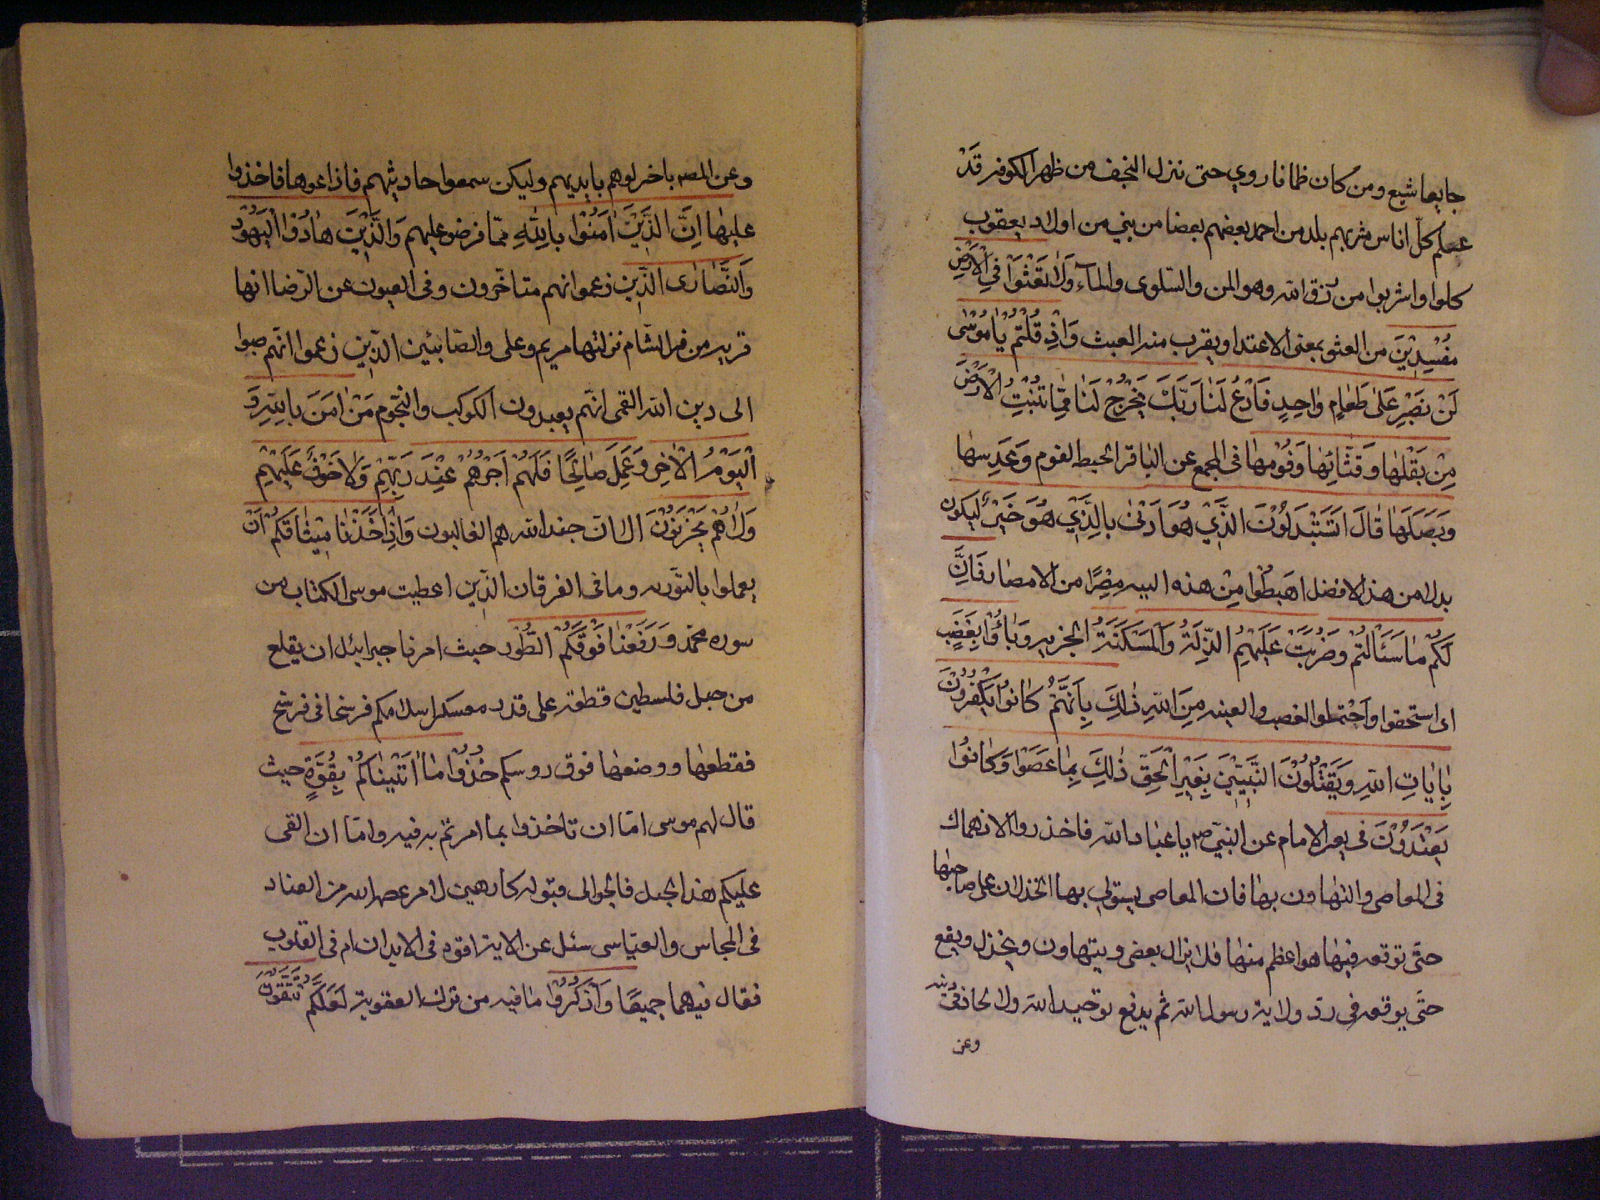 جايعا شبع ومن كان ظمانا روي حتى نزل النجف من ظهر الكوفه قَدْ
علم كلّ اناس مشربهم بلد من احمد بعضهم بعضا من بني من اولاد يعقوب
كلوا واشربوا من رزق الله وهو المن والسّلوى والمآء وَلٰا تَعْثَوْا فِى الْاَرْضِ
مُفْسِدِيْنَ من العثو بمعنى الاعتداء ويقرب منه العبث وَاِذْ قُلْتُمْ يٰا مُوْسٰى
لَنْ نَصْبِرَ عَلٰى طَعٰامٍ وٰاحِدٍ فَادْعُ لَنٰا رَبَّكَ يُخْرِجْ لَنٰا مِمّٰا تُنْبِتُ الْاَرْضُ
مِنْ بَقْلِهٰا وَقِثّٰائِهٰا وَفُوْمِهٰا فى المجمع عن الباقر الحنطه الفوم وَعَدَسِهٰا
وَبَصَلِهٰا قٰالَ اَتَسْتَبْدِلُوْنَ الَّذِيْ هُوَ اَدْنٰى بِالَّذِيْ هُوَ خَيْرٌ ليكون
بدلا من هذا الافضل اِهْبِطُوْا مِنْ هذه التيه مِصْرًا من الامصار فَاِنَّ
لَكُمْ مٰا سَئَالْتُمْ وَضُرِبَتْ عَلَيْهِمُ الذِّلَةُ وَالْمَسْكَنَةُ الجزيه وَبٰاۤؤُا بِغَضَبٍ
اى استحقوا واحتملوا الغضب واللعينه مِنَ اللهِ ذٰلِكَ بِاَنَّهُمْ كٰانُوْا يَكْفُرُوْنَ
بِاٰيٰاتِ اللهِ وَيَقْتُلُوْنَ النَّبِيّيْنَ بِغَيْرِ الْحَقِّ ذٰلِكَ بِمٰا عَصَوْا وَكٰانُوْا
يَعْتَدُوْنَ فى تفسير الامام عن النبيّ ص يا عباد الله فاحذروا الانهماك
فى المعاصى والتهاون بها فان المعاصى يستولي بها الخذلان على صاحبها
حتّى توقعه فيها هو اعظم منها فلا يزال يعصى ويتهاون ويخذل ويقع
حتّى يوقعه فى ردّ ولاية رسول الله ثم يدفع توحيد الله والالحاد فى دينه
وعن
وعن المصه باخر لوهم بايديهم وليكن سمعوا احاديثهم فاذاعوها فاخذوا
عليها اِنَّ الَّذِيْنَ اٰمَنُوْا بِاللهِ ممّا فرض عليهم وَالَّذِيْنَ هٰادُوْا اليَهُوْد
وَالنَّصٰارٰى الَّذِين زعموا انهم متناصّرون وفى العيون عن الرّضا انها
قريه من الشّام نزلتها مريم وعلى والصّابئين الّذين زعموا انّهم صبوا
الى دين الله القمى انّهم يعبدون الكوكب والنّجوم مَنْ اٰمَنَ بِاللهِ وَ
الْيَوْمِ الْاٰخِرِ وَعَمِلَ صٰالِحًا فَلَهُمْ اَجْرُهُمْ عِنْدَ رَبِّهِمْ وَلٰا خَوْفٌ عَلَيْهِمْ
وَلٰا هُمْ يَحْزَنُوْنَ الا انّ جند الله هم الغالبون وَاِذْ اَخَذْنٰا مِيْثٰاقَكُمْ اَنْ
يعملوا بالتّوريه وما فى الفرقان الّذين اعطيت موسى الكتاب من
سوره محمّد وَرَفَعْنٰا فَوْقَكُمْ الطُّوْر حيث امرنا جبرائيل ان يقلع
من جبل فلسطين قطعة على قدر معسكر اسلامكم فرسخا فى فرسخ
فقطعها ووضعها فوق روسكم خُذُوْا مٰا اٰتَيْنٰاكُمْ بِقُوَّةٍ حيث
قال لهم موسى امّا ان تاخذوا بما امرتم به فيه وامّا ان القى
عليكم هذا الجبل فالجوا الى قبوله كارهين الّا من عصمه الله من العناد
فى المجاس والعيّاسى سئل عن الاية اقوة فى الابدان ام فى القلوب
فقال فيهما جميعًا وَاذْكُرُوْا مٰا فيه من ترك العقوبة لَعَلَّكُمْ تَتَّقُوْنَ